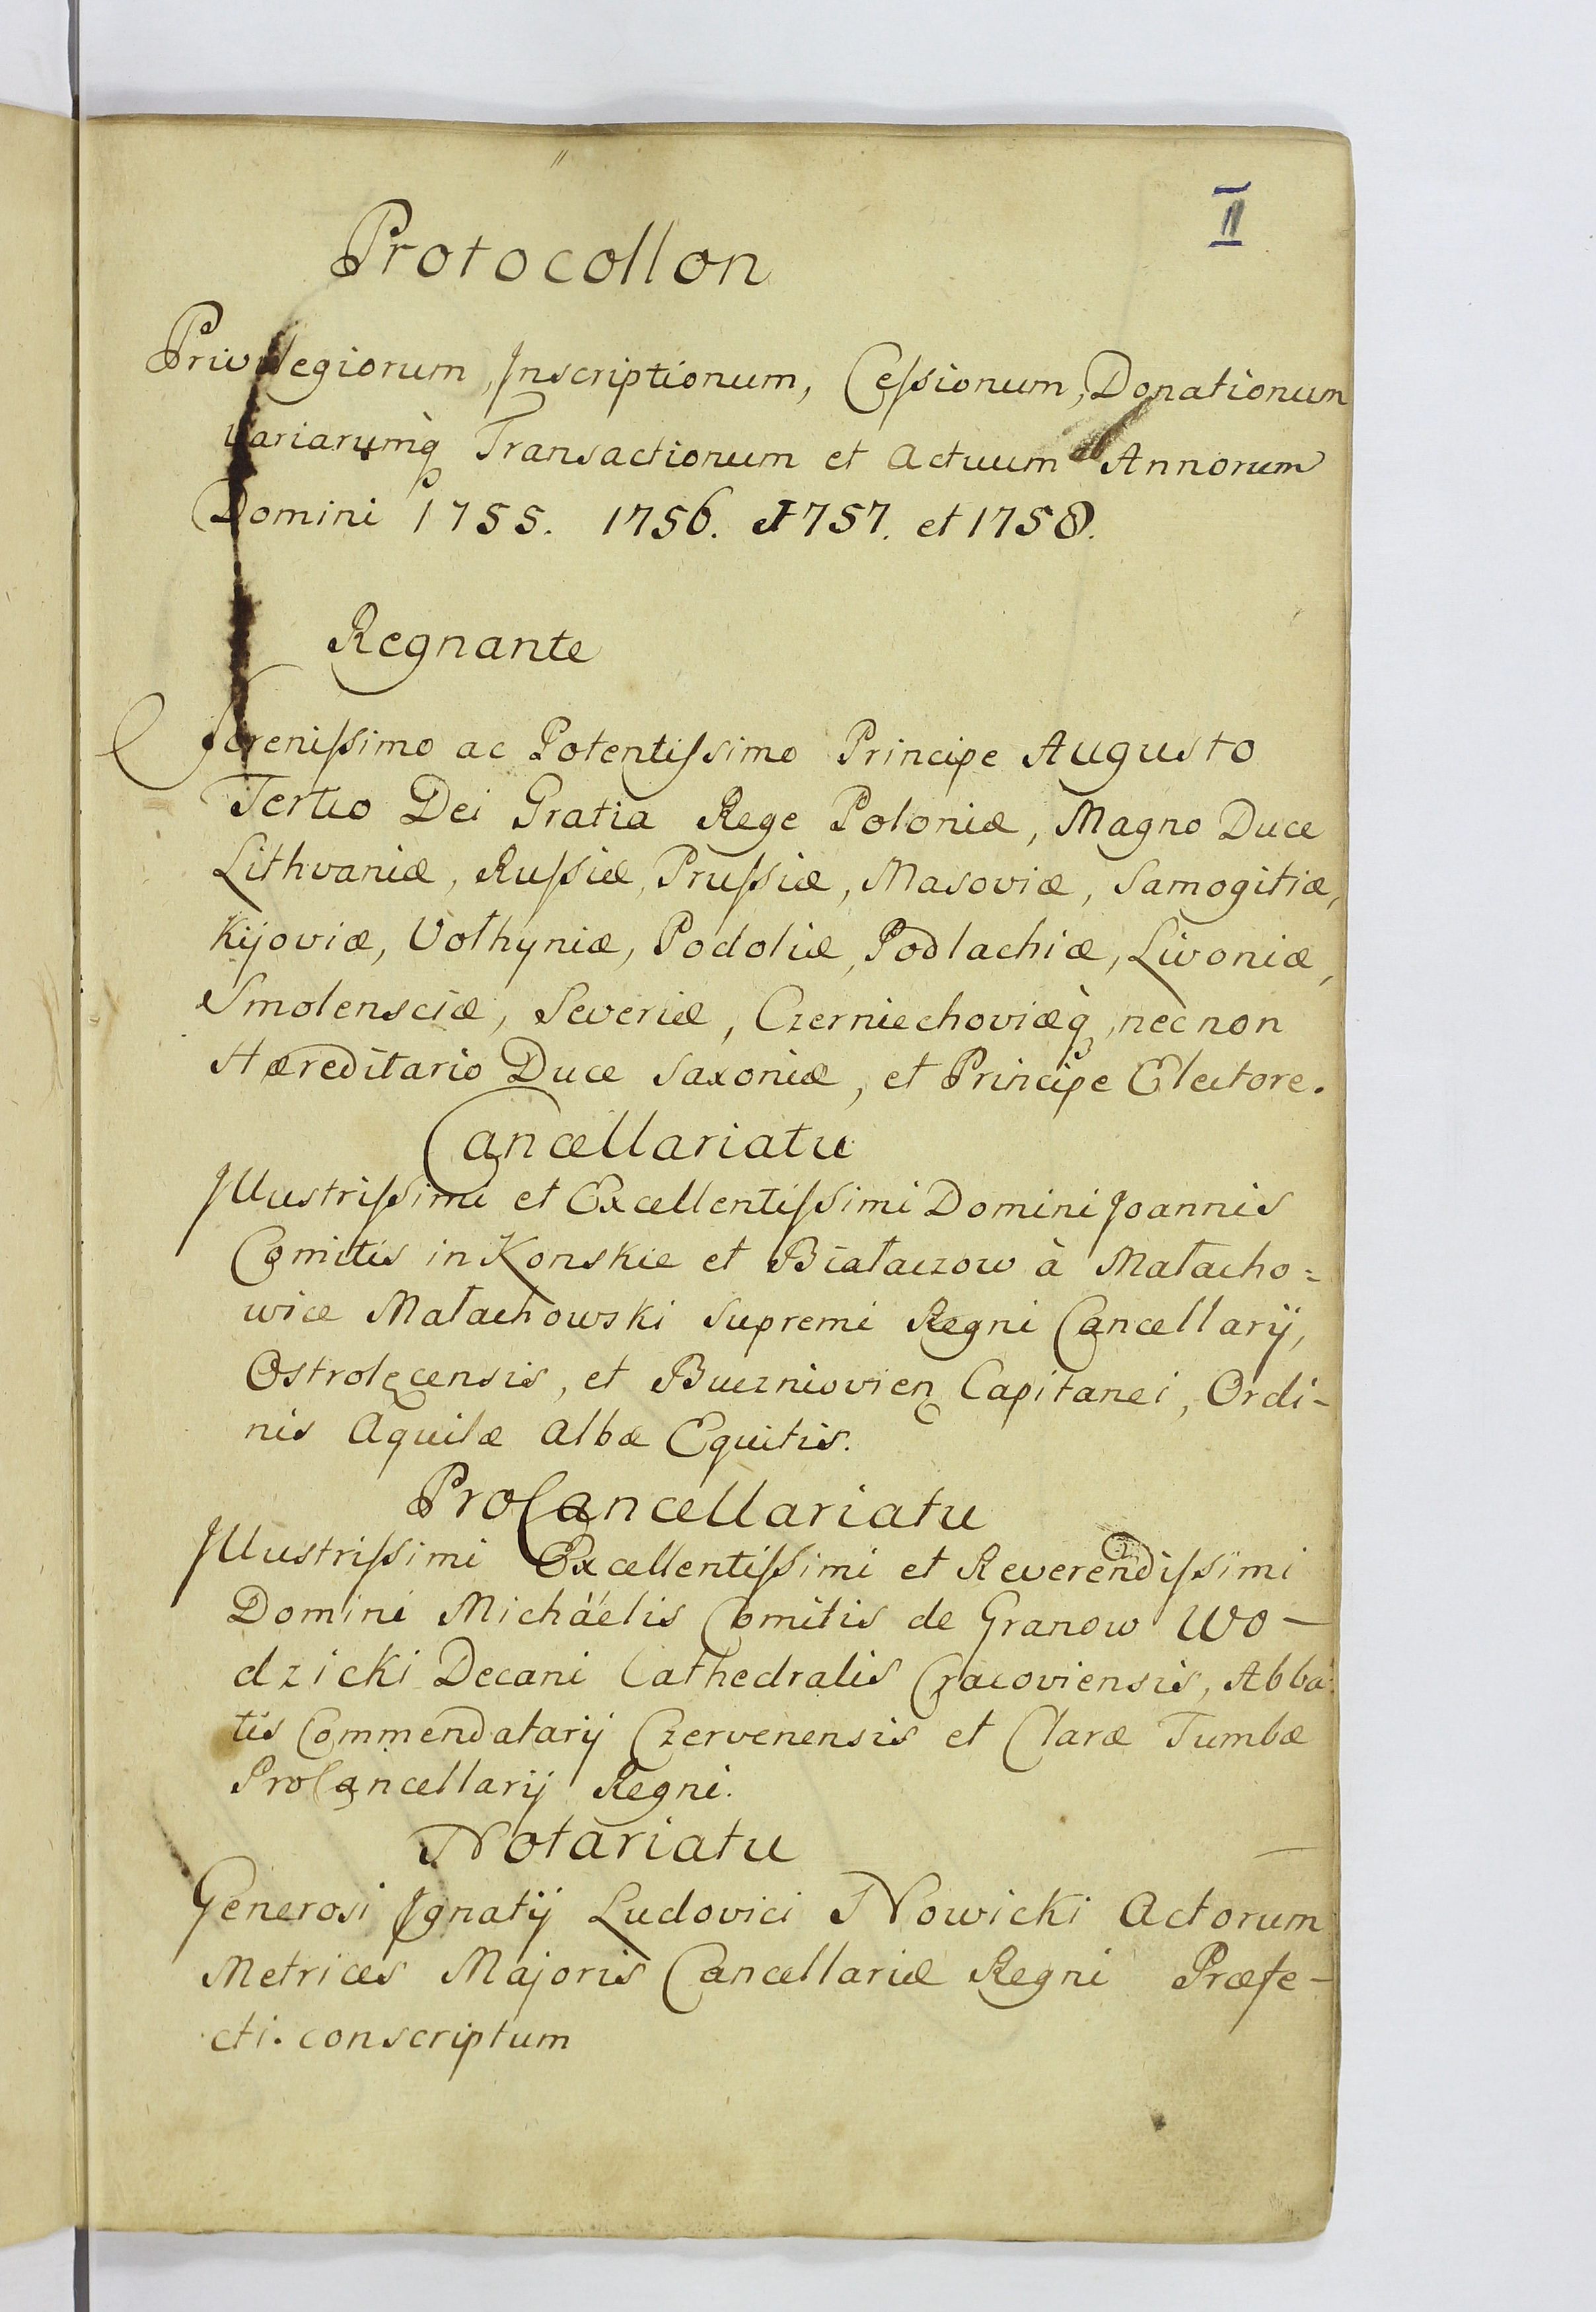 II
Protocollon
Privilegiorum, Inscriptionum, Cessionum, Donationum
variarumq́ Transactionum et Actuum Annorum
Domini 1755. 1756. 1757. et 1758.
Regnante
Serenissimo ac Potentissimo Principe Augusto
Tertio Dei Gratia Rege Poloniæ, Magno Duce
Lithvaniæ, Russiæ, Prussiæ, Masoviæ, Samogitiæ,
Kijoviæ, Volhyniæ, Podoliæ, Podlachiæ, Livoniæ,
Smolensciæ, Severiæ, Czerniechoviæq̀, nec non
Hæreditario Duce Saxoniæ, et Principe Electore.
Cancellariatu
Illustrissimi et Excellentissimi Domini Joannis
Comitis in Konskie et Białaczow à Małacho=
wice Małachowski Supremi Regni Cancellarÿ,
Ostrolęcensis, et Buczniovien Capitanei, Ordi-
nis Aquilæ Albæ Equitis.
ProCancellariatu
Illustrissimi Excellentissimi et Reverendissimi
Domini Michäelis Comitis de Granow Wo-
dzicki Decani Cathedralis Cracoviensis, Abba
tis Commendatarij Czervenensis et Claræ Tumbæ
ProCancellarij Regni.
Notariatu
Generosi Ignatij Ludovici Nowicki Actorum
Metrices Majoris Cancellariæ Regni Præfe-
cti. conscriptum